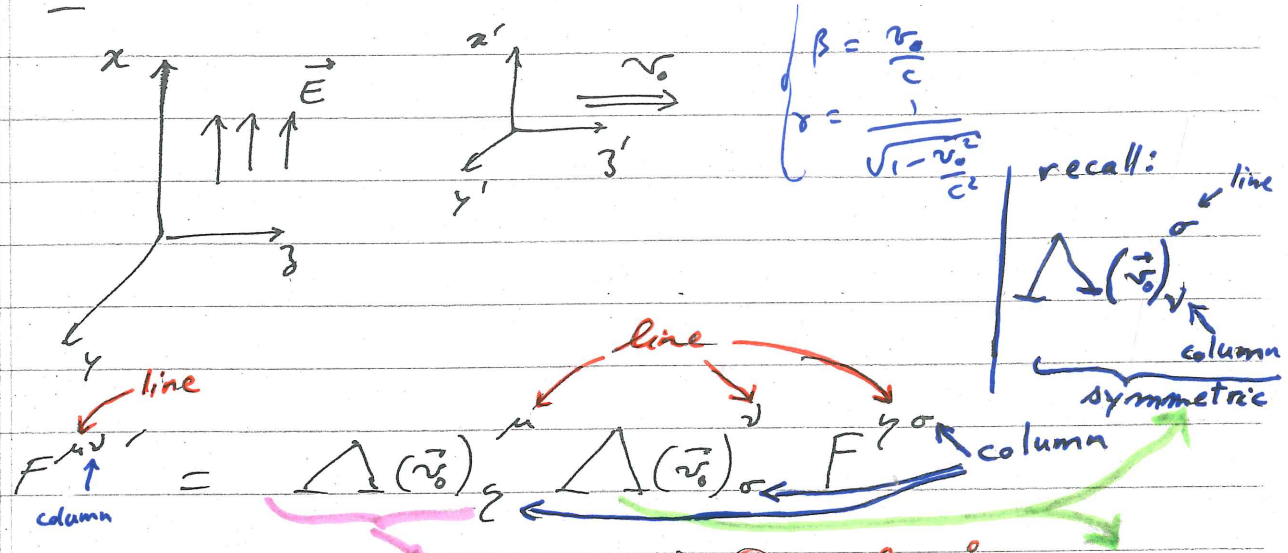 x
E⃗
x'
v₀
z'
y'
z
y
β = v₀/c
γ = 1/√(1 - v₀²/c²)
recall:
line
Λ(v⃗₀)^σ_ν
column
symmetric
line
line
F^μν' = Λ(v⃗₀)^μ_η Λ(v⃗₀)^ν_σ F^ησ
column
column